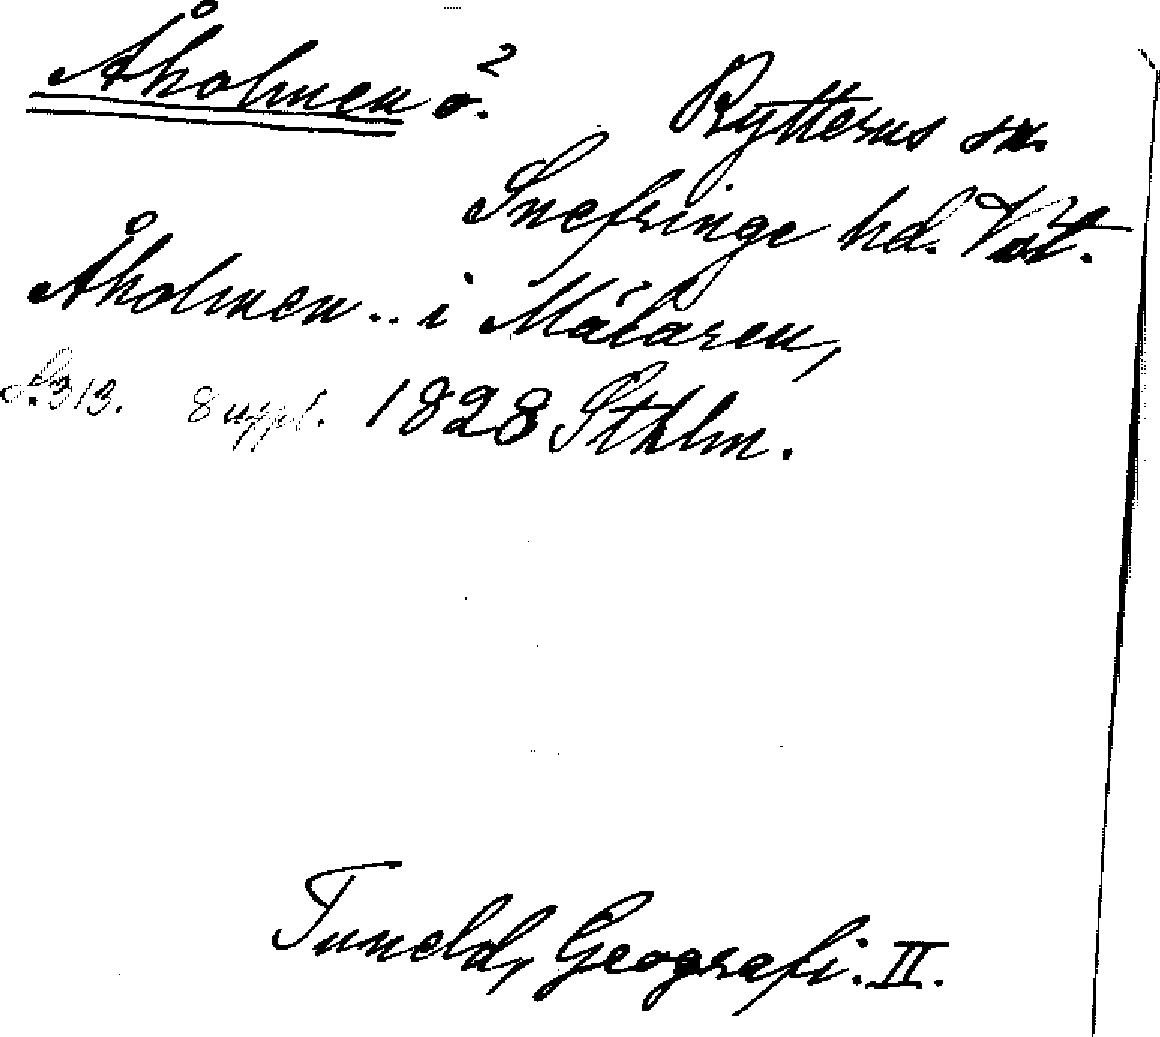 Åholmen ö.² Rytterns sn.
Snefringe hd. Vstm.
Åholmen .. i Mälaren,
S. 313. 8 uppl. 1828 Sthlm.
Tuneld, Geografi. II.